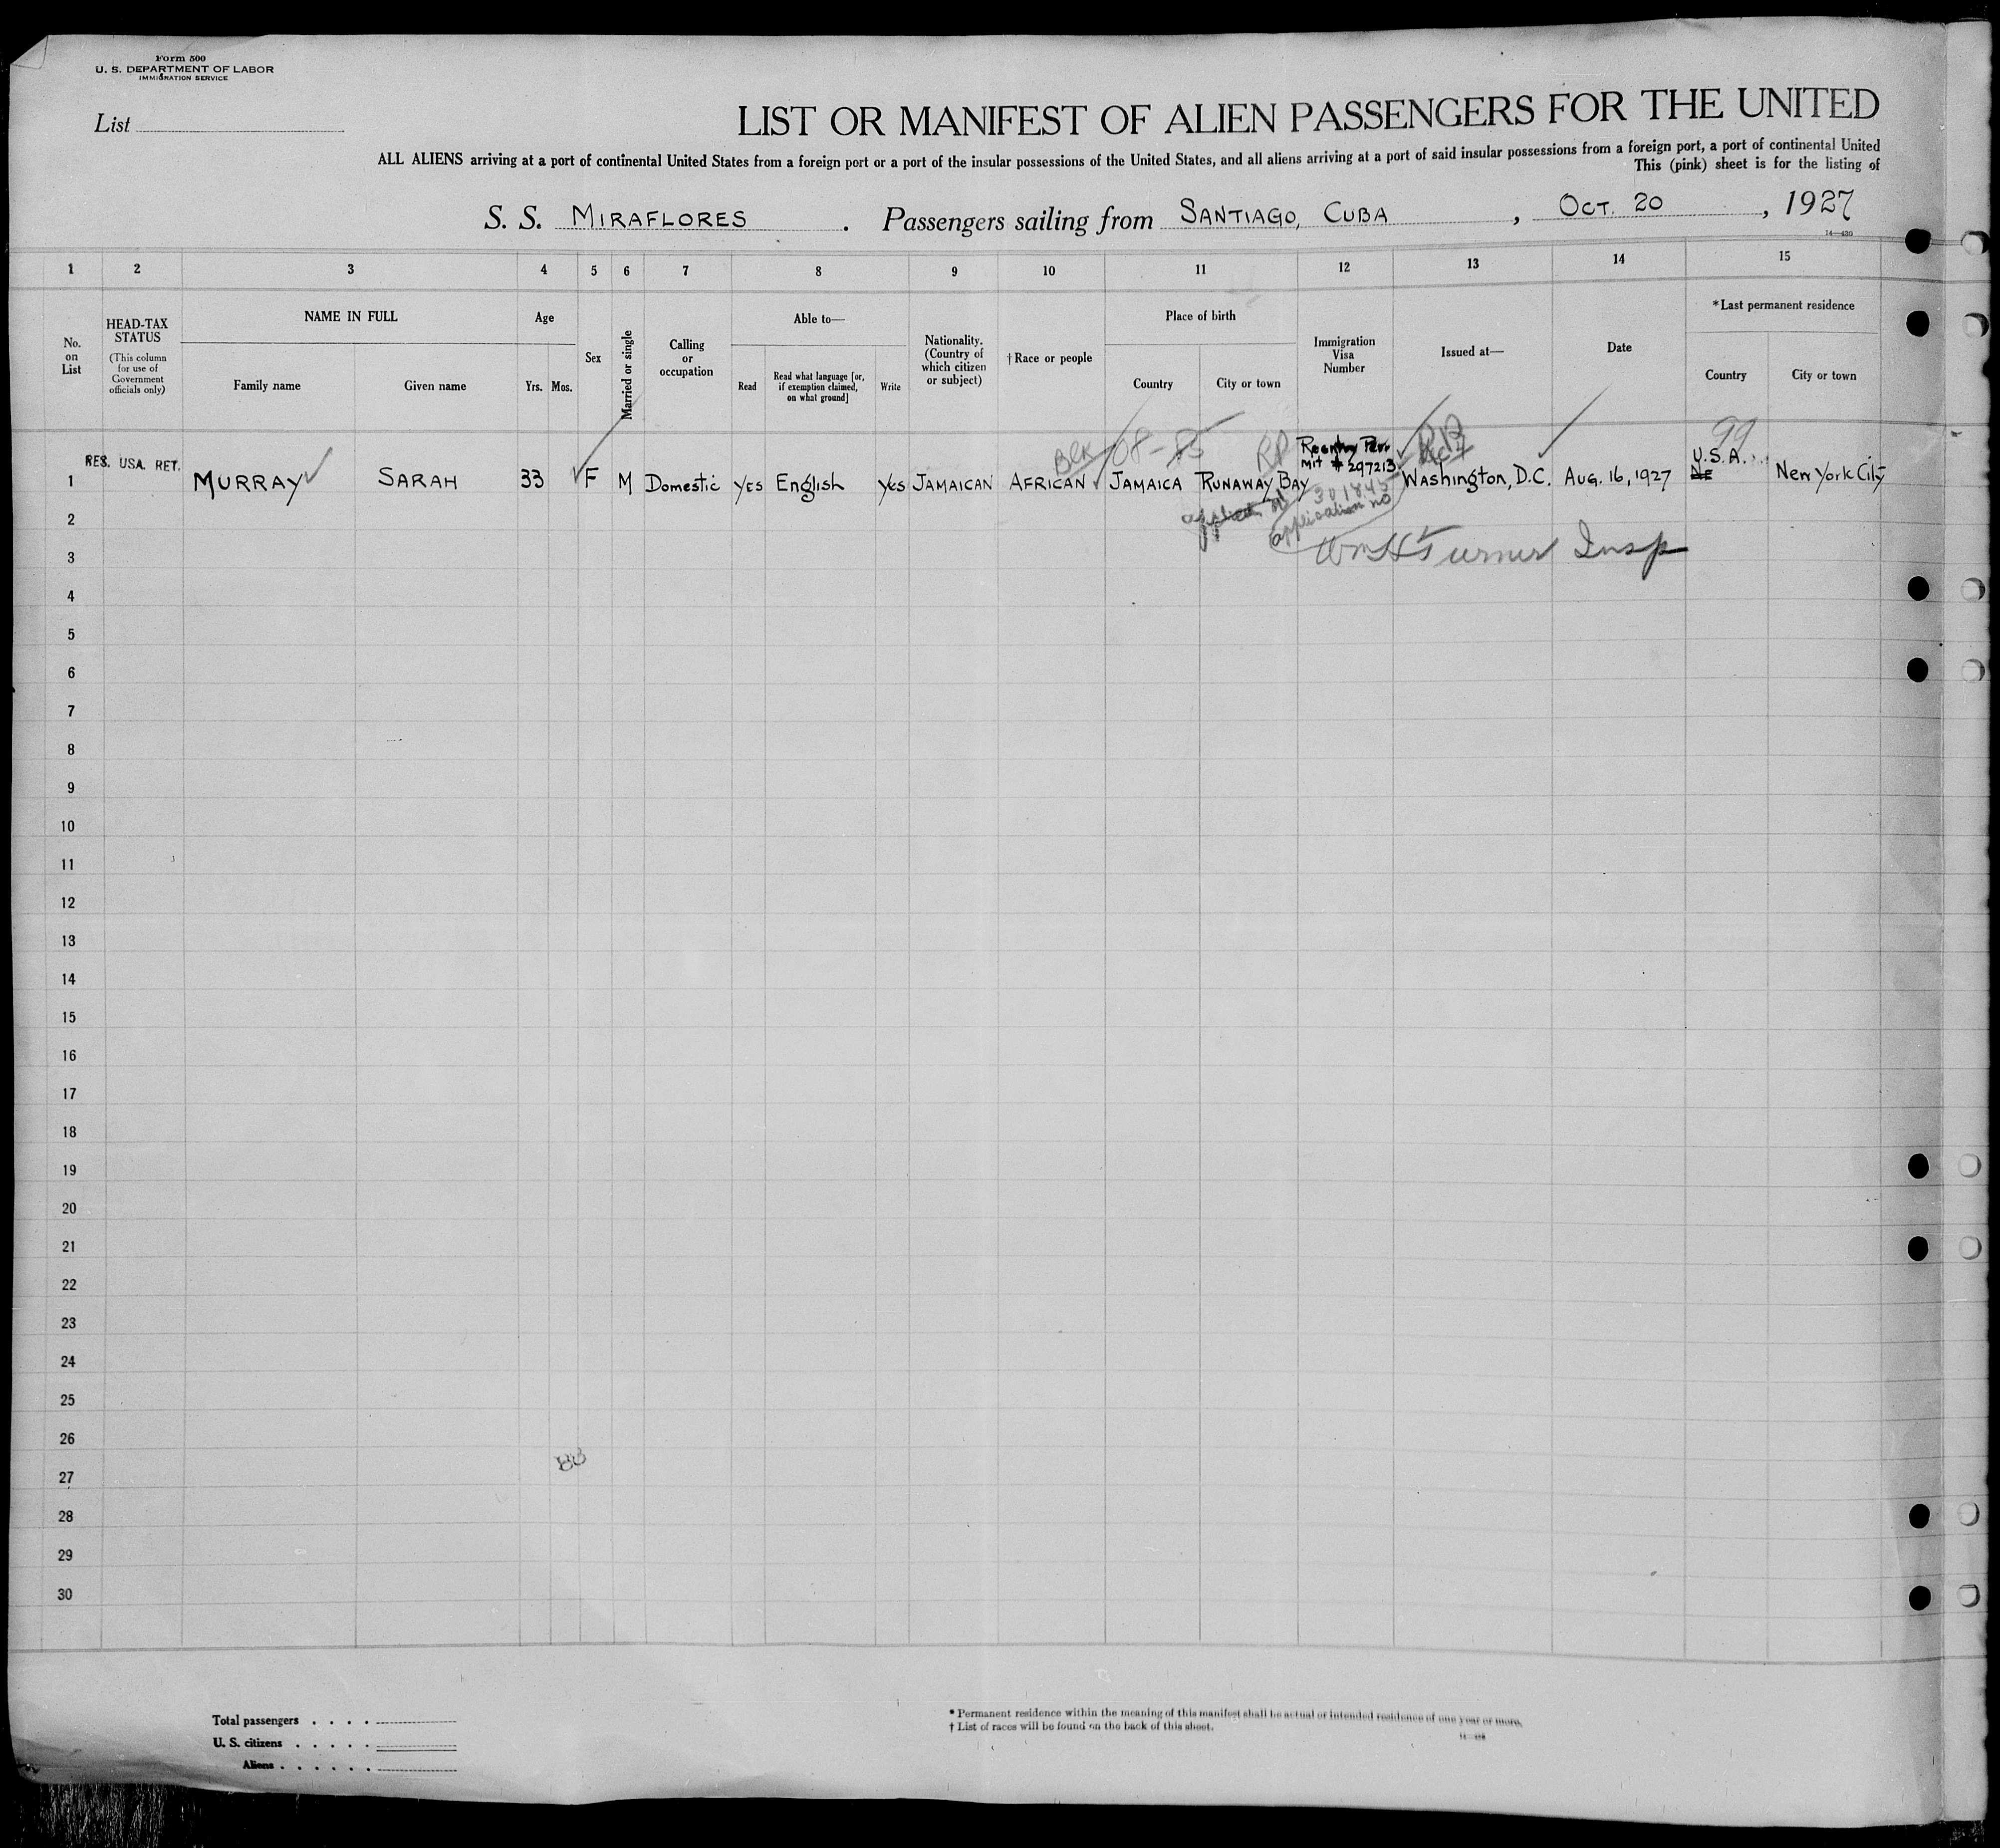 Form 500
U. S. DEPARTMENT OF LABOR
IMMIGRATION SERVICE
List
LIST OR MANIFEST OF ALIEN PASSENGERS FOR THE UNITED
ALL ALIENS arriving at a port of continental United States from a foreign port or a port of the insular possessions of the United States, and all aliens arriving at a port of said insular possessions from a foreign port, a port of continental United
This (pink) sheet is for the listing of
S. S. MIRAFLORES . Passengers sailing from SANTIAGO, CUBA , OCT. 20 , 1927
14—420
1 2 3 4 5 6 7 8 9 10 11 12 13 14 15
No. on List
HEAD-TAX STATUS
(This column for use of Government officials only)
NAME IN FULL
Family name Given name
Age
Yrs. Mos.
Sex
Married or single
Calling or occupation
Able to—
Read
Read what language [or, if exemption claimed, on what ground]
Write
Nationality. (Country of which citizen or subject)
†Race or people
Place of birth
Country City or town
Immigration Visa Number
Issued at—
Date
*Last permanent residence
Country City or town
Blk 08-85 RP 99
Reentry Per-
mit # 297213
U.S.A.
RES. USA. RET.
1 MURRAY SARAH 33 F M Domestic Yes English Yes JAMAICAN AFRICAN JAMAICA RUNAWAY BAY Washington, D.C. Aug. 16, 1927 New York City
301845
application no
2
Wm H Turner Insp
3
4
5
6
7
8
9
10
11
12
13
14
15
16
17
18
19
20
21
22
23
24
25
26
27
28
29
30
Total passengers . . . .
U. S. citizens . . . . .
Aliens . . . . . .
* Permanent residence within the meaning of this manifest shall be actual or intended residence of one year or more.
† List of races will be found on the back of this sheet.